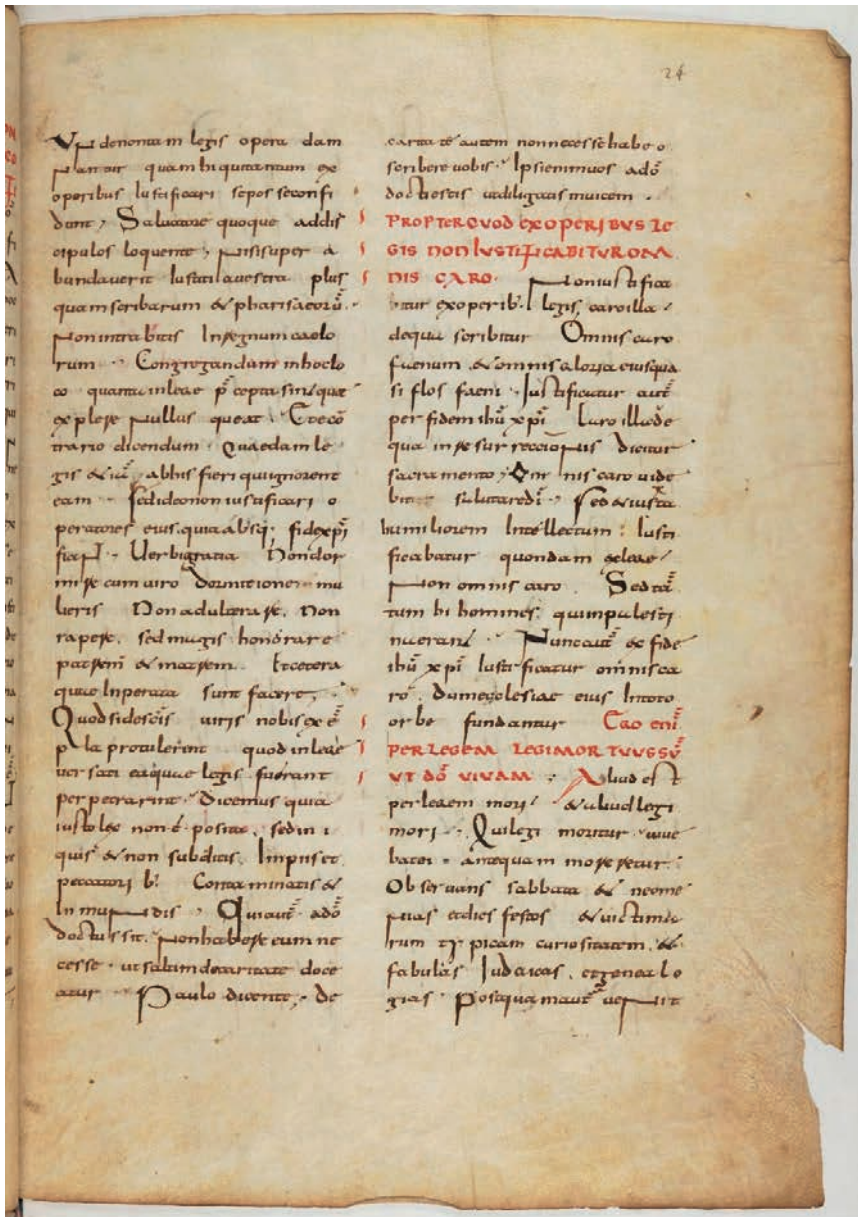 24
Vndenontam legis opera dam
nantur quam hi qui tantum ex
operibus Iustificari seposseconfi
dunt, Saluatore quoque addis
cipulos loquente, Nisisuper a
bundauerit Iustitiauestra plus
quamscribarum & pharisaeorū.
Nonintrabitis Inregnum caelo
rum. Congregandum inhoclo
co quanta inlege p̄cepta sint quae
explere Nullus queat. Etecō
trario dicendum Quaedam le
gis abhis fieri quiignorent
eam. Sedideononiustificari o
peratores eius. quia absq; fidexp̄i
fiant. Uerbigratia Noncdor
mire cum uiro mu
lieris Nonadulterare. Non
rapere. sedmagis honorare
patrem & matrem. Etcetera
quae Inperata sunt facere,
Quodsidescīs uiris nobis exē
pla protulerint quodinlege
uersati eaquae legis fuerant
perpetrarint. Dicemus quia
iusto lex non ē posita. sedin i
quis & non subditis. Impiiset
peccatorib; Contaminatis &
Inmundis. Quiautē adō
doctussit. Nonhabere eum ne
cesse. utsaltimdecaritate doce
atur. Paulo dicente, de
caritate autem nonnecessehabeo
scribere uobis. Ipsienimuos adō
doctiestis utdiligatisinuicem.
PROPTERQUOD EXOPERIBUS LE
GIS NON IUSTIFICABITUR OM
NIS CARO. Noniustifica
bitur exoperib; legis, caroilla
dequa scribitur Omnis caro
faenum & omnis gloria eiusqua
si flos faeni. Iustificatur autē
per fidem ihū xp̄i Caro illade
qua inresurrectionis dicitur
sacramento, Omnis caro uide
bit salutaredī. Sed & iuxta
humiliorem Intellectum: Iusti
ficabatur quondam exlege
Non omnis caro. Sed tā
tum hi homines. quiinpalesti
naerant. Nunc autē ex fide
ihū xp̄i Iustificatur omnis ca
ro. Dumecclesiae eius Intoto
orbe fundantur Ego enī
PER LEGEM LEGIMORTUUSSŪ
UT DŌ VIVAM. Aliud est
perlegem mori & aliud legi
mori. Quilegi moritur uiue
batei. antequam moreretur.
Obseruans sabbata & neome
nias etdies festos & uictima
rum typicam curiositatem. &
fabulas Iudaicas. etgenealo
gias. Postquamautē uenit